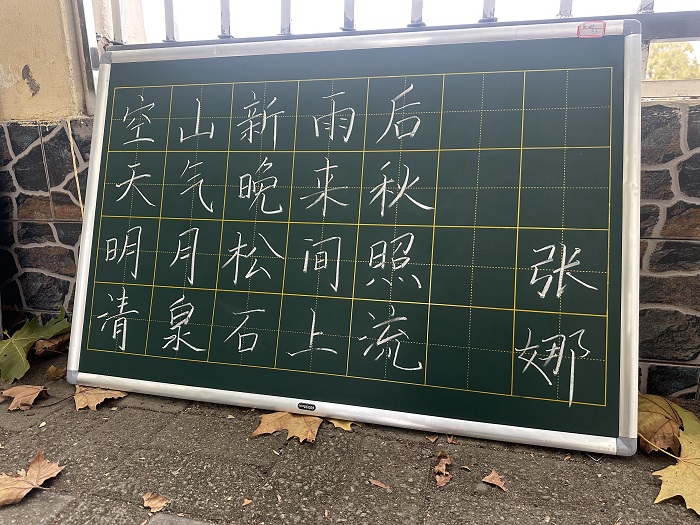 空山新雨后
天气晚来秋
明月松间照
清泉石上流
张娜